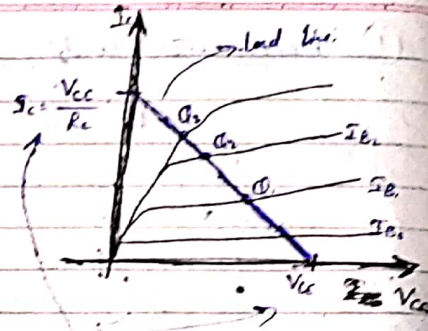 Ic
Load Line
Ic = Vcc/Rc
Q3
Q2
Q
IB2
IB1
Vcc
Vcc